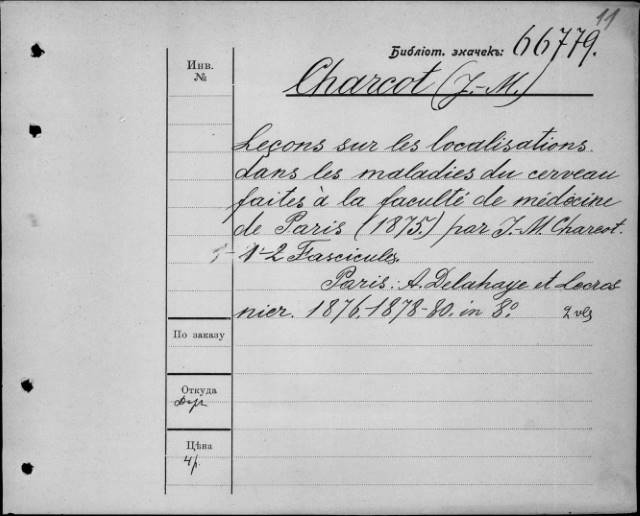 11
Библіот. значекъ: 66779.
Инв.
№
Charcot (J.-M.)
Leçons sur les localisations
dans les maladies du cerveau
faites à la faculté de médecine
de Paris (1875.) par J.-M. Charcot.
1-2 Fascicules.
Paris: A. Delahaye et Lecros
nier. 1876, 1878-80. in 8º 2 vls
По заказу
Откуда
Цѣна
4р.